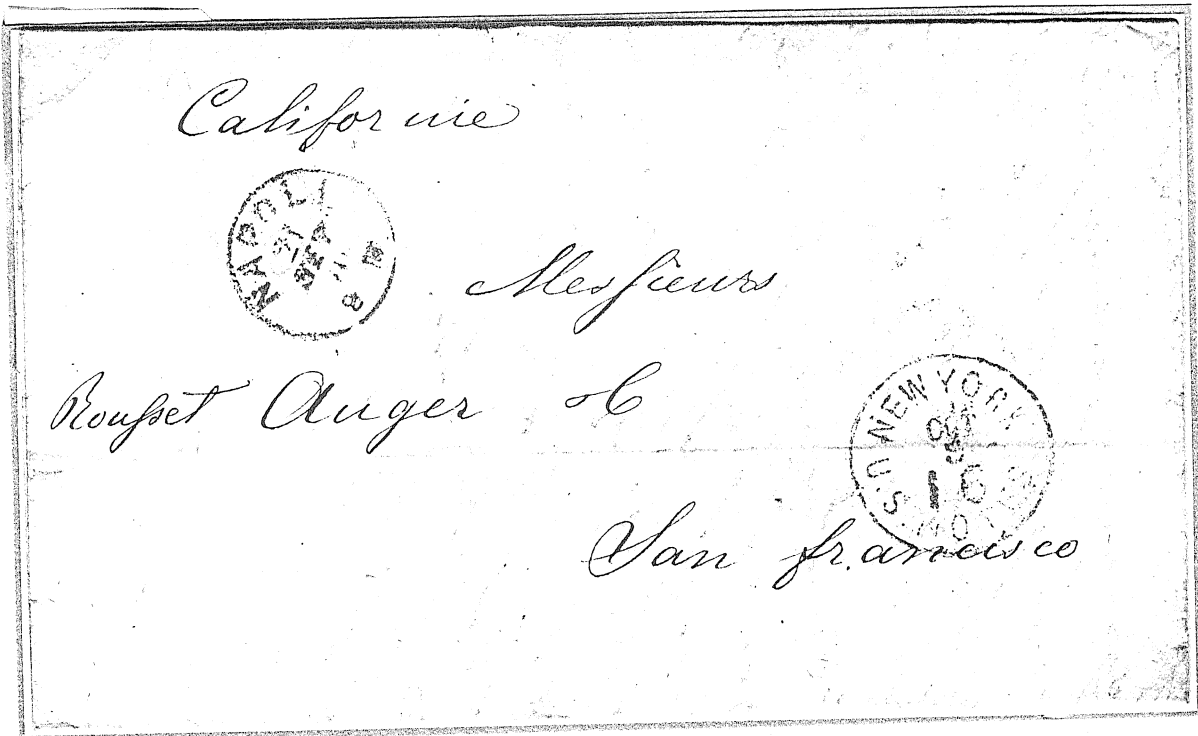 Californie
NAPOLI
21
SEP
8
Messieurs
Rousset Auger & C
NEW YORK
OCT
16
U.S.
NOTES
San francisco